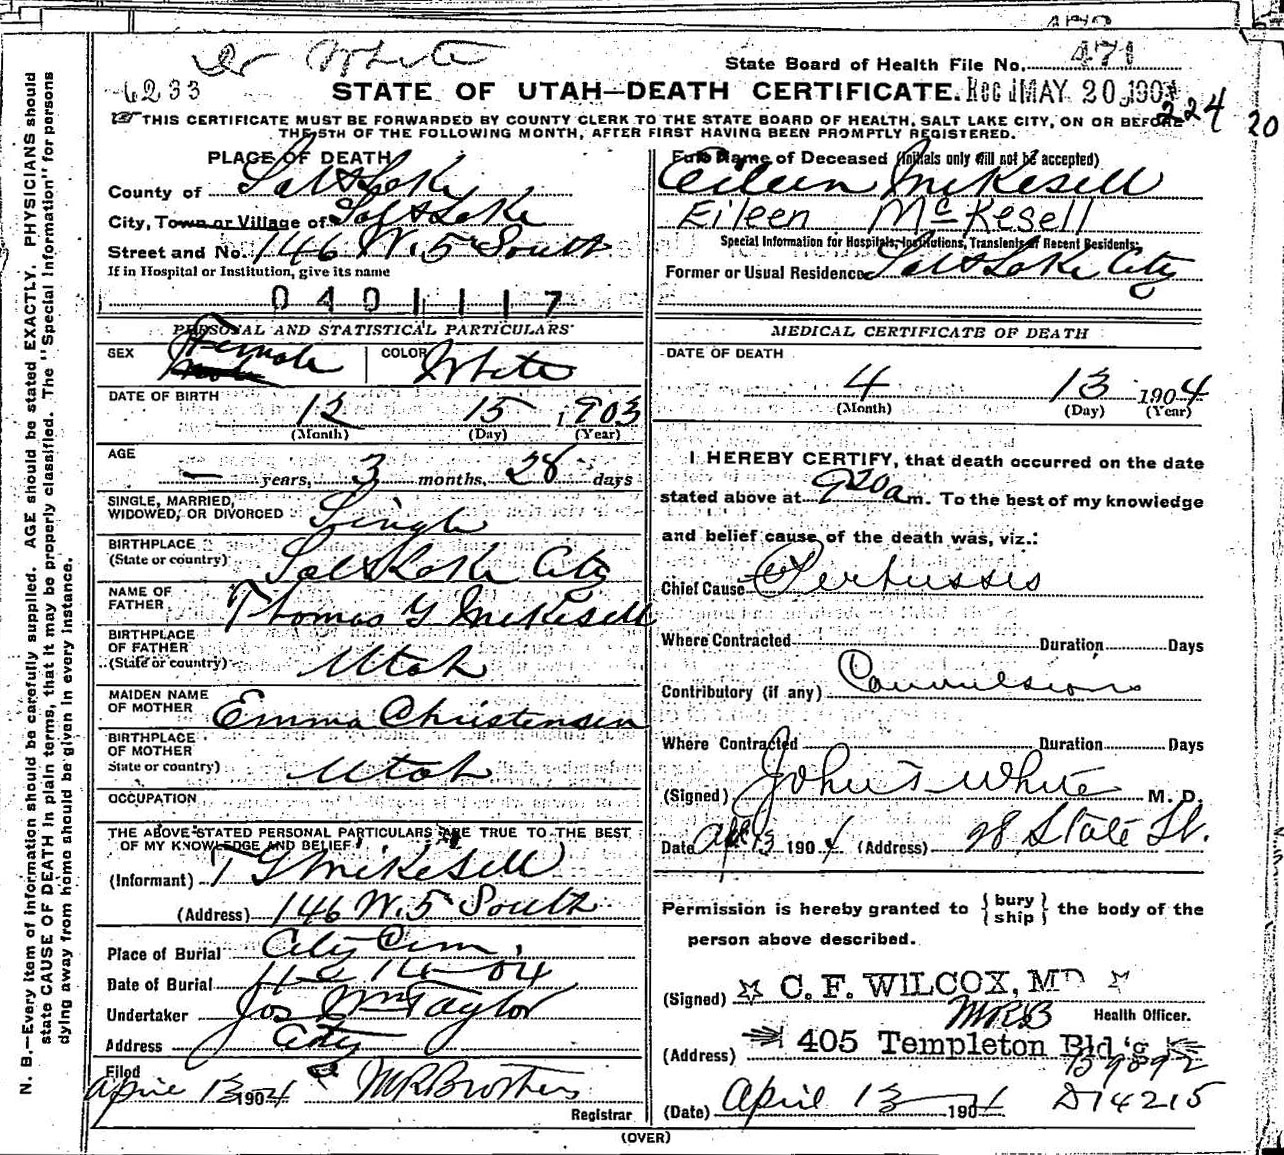 Dr White
State Board of Health File No. 471
6233
STATE OF UTAH—DEATH CERTIFICATE. Rec'd MAY 20 1904
224
20
THIS CERTIFICATE MUST BE FORWARDED BY COUNTY CLERK TO THE STATE BOARD OF HEALTH, SALT LAKE CITY, ON OR BEFORE
THE 5TH OF THE FOLLOWING MONTH, AFTER FIRST HAVING BEEN PROMPTLY REGISTERED.
PLACE OF DEATH
County of Salt Lake
City, Town or Village of Salt Lake
Street and No. 146 W. 5 South
If in Hospital or Institution, give its name
0401117
PERSONAL AND STATISTICAL PARTICULARS
SEX Female COLOR White
DATE OF BIRTH
12 15 1903
(Month) (Day) (Year)
AGE
— years, 3 months, 28 days
SINGLE, MARRIED,
WIDOWED, OR DIVORCED Single
BIRTHPLACE
(State or country) Salt Lake City
NAME OF
FATHER Thomas G Mikesell
BIRTHPLACE
OF FATHER
(State or country) Utah
MAIDEN NAME
OF MOTHER Emma Christensen
BIRTHPLACE
OF MOTHER
State or country) Utah
OCCUPATION
THE ABOVE STATED PERSONAL PARTICULARS ARE TRUE TO THE BEST
OF MY KNOWLEDGE AND BELIEF
(Informant) T G Mikesell
(Address) 146 W. 5 South
Place of Burial City Cem.
Date of Burial 4-14-04
Undertaker Jos Wm Taylor
Address City
Filed
April 13 1904 M R Brothers
Registrar
Full Name of Deceased (Initials only will not be accepted)
Eileen Mikesell
Eileen McKesell
Special Information for Hospitals, Institutions, Transients or Recent Residents:
Former or Usual Residence Salt Lake City
MEDICAL CERTIFICATE OF DEATH
DATE OF DEATH
4 13 1904
(Month) (Day) (Year)
I HEREBY CERTIFY, that death occurred on the date
stated above at 9 20 a m. To the best of my knowledge
and belief cause of the death was, viz.:
Chief Cause Pertussis
Where Contracted Duration Days
Contributory (if any) Convulsions
Where Contracted Duration Days
(Signed) John T White M. D.
Date Apr 13 1904 (Address) 28 State St.
Permission is hereby granted to {bury
ship} the body of the
person above described.
(Signed) C. F. WILCOX, MD
MRB Health Officer.
(Address) 405 Templeton Bld'g
B9892
(Date) April 13 1904 D14215
(OVER)
N. B.—Every item of information should be carefully supplied. AGE should be stated EXACTLY. PHYSICIANS should
state CAUSE OF DEATH in plain terms, that it may be properly classified. The "Special Information" for persons
dying away from home should be given in every instance.